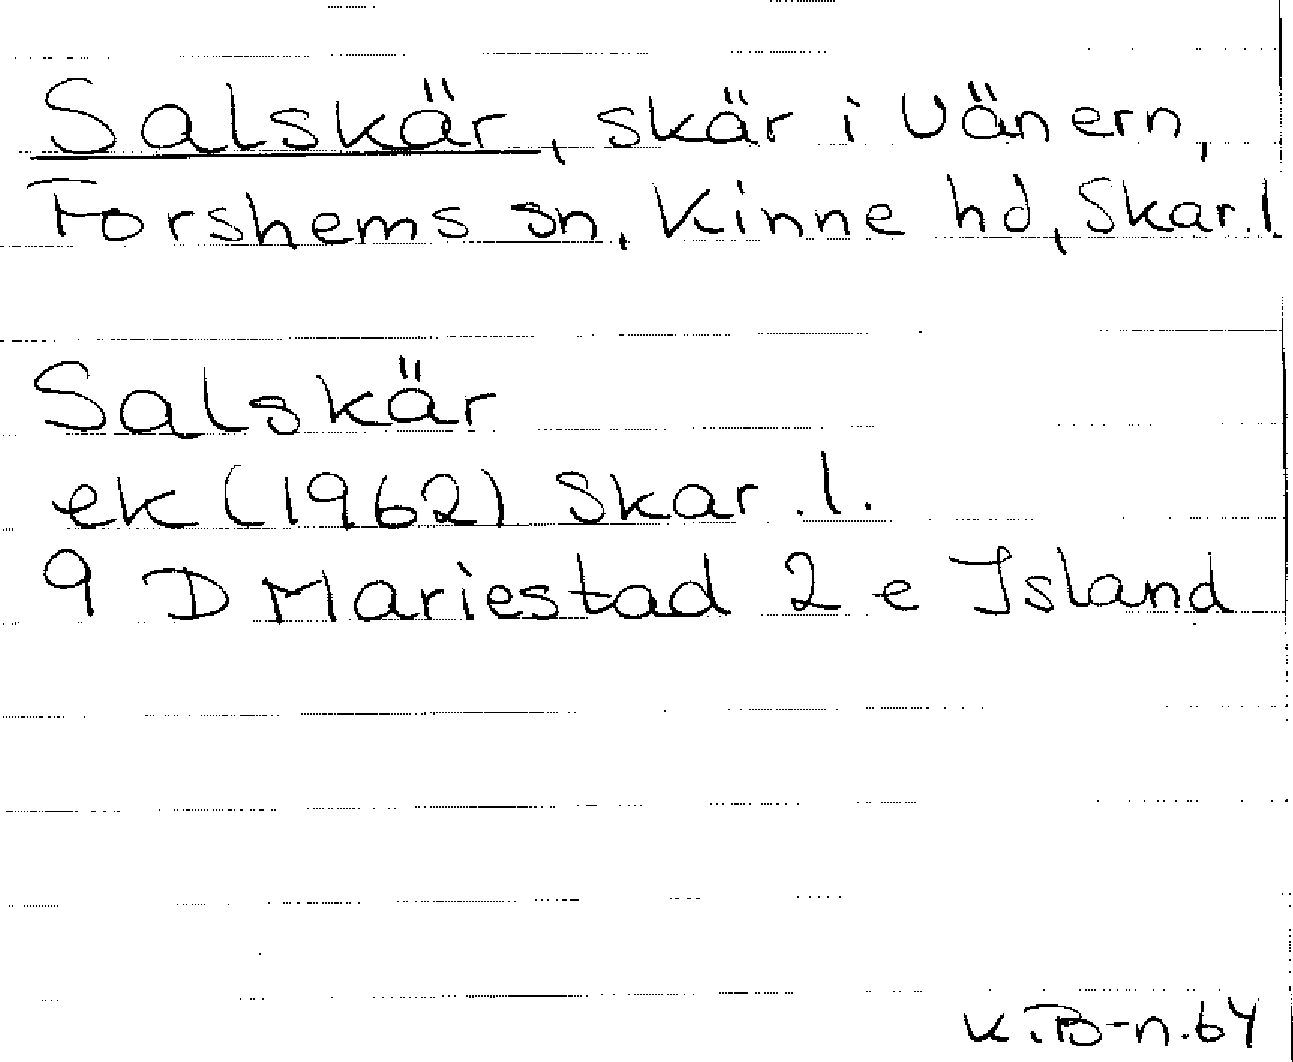 Salskär, skär i Vänern,
Forshems sn, Kinne hd, Skar.l.
Salskär
ek (1962) Skar.l.
9 D Mariestad 2 e Island
K.B-n.64